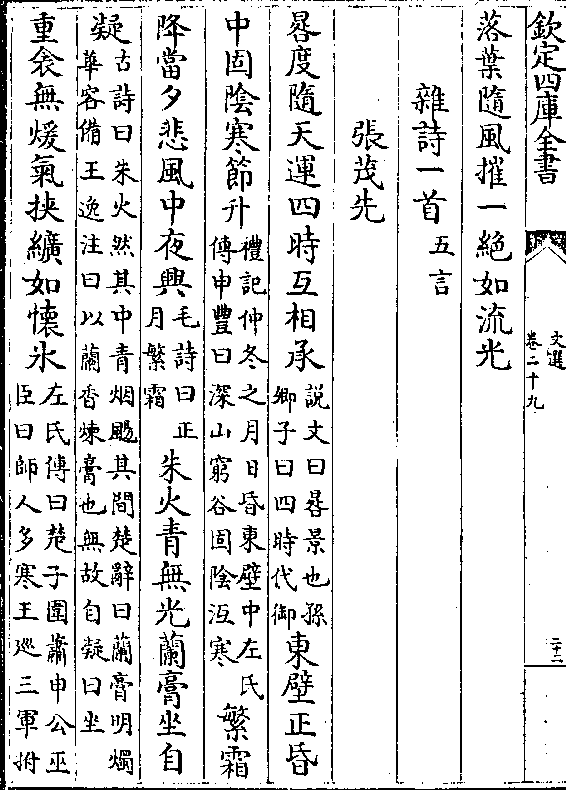 欽定四庫全書
文選
卷二十九
二十二
落葉隨風摧一絶如流光
雜詩一首
五言
張茂先
晷度隨天運四時互相承
說文曰晷景也孫
卿子曰四時代御
東壁正昏
中固陰寒節升
禮記仲冬之月日昏東壁中左氏
傳申豐曰深山窮谷固陰沍寒
繁霜
降當夕悲風中夜興
毛詩曰正
月繁霜
朱火青無光蘭膏坐自
凝
古詩曰朱火然其中青烟颺其間楚辭曰蘭膏明燭
華容備王逸注曰以蘭香煉膏也無故自凝曰坐
重衾無煖氣挾纊如懷氷
左氏傳曰楚子圍蕭申公巫
臣曰師人多寒王廵三軍拊